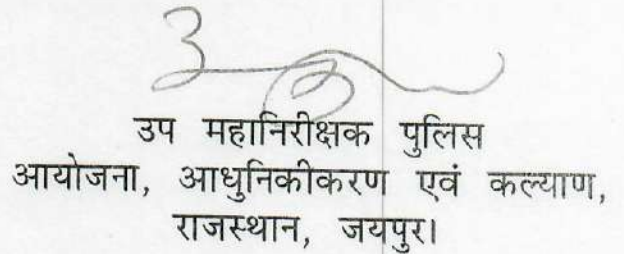 उप महानिरीक्षक पुलिस
आयोजना, आधुनिकीकरण एवं कल्याण,
राजस्थान, जयपुर।